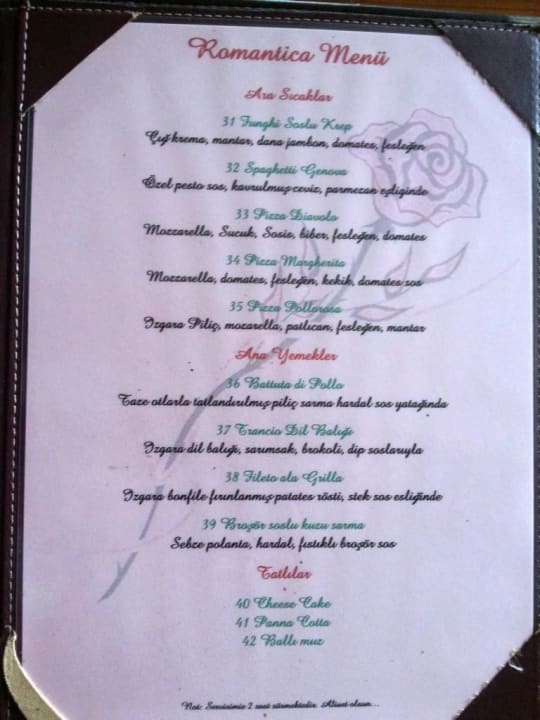 Romantica Menü
Ara Sıcaklar
31 Funghi Soslu Krep
Çığ krema, mantar, dana jambon, domates, fesleğen
32 Spaghetti Genova
Özel pesto sos, kavrulmuş ceviz, parmezan eşliğinde
33 Pizza Diavolo
Mozzarella, Sucuk, Sosis, biber, fesleğen, domates
34 Pizza Margherita
Mozzarella, domates, fesleğen, kekik, domates sos
35 Pizza Pollorosa
Izgara Piliç, mozarella, patlıcan, fesleğen, mantar
Ana Yemekler
36 Battuta di Pollo
Taze otlarla tatlandırılmış piliç sarma hardal sos yatağında
37 Trancio Dil Balığı
Izgara dil balığı, sarımsak, brokoli, dip soslarıyla
38 Fileto ala Grilla
Izgara bonfile fırınlanmış patates rösti, stek sos esliğinde
39 Broşör soslu kuzu sarma
Sebze polanta, hardal, fıstıklı broşör sos
Tatlılar
40 Cheese Cake
41 Panna Cotta
42 Ballı muz
Not: Servisimiz 2 saat sürmektedir. Afiyet olsun...